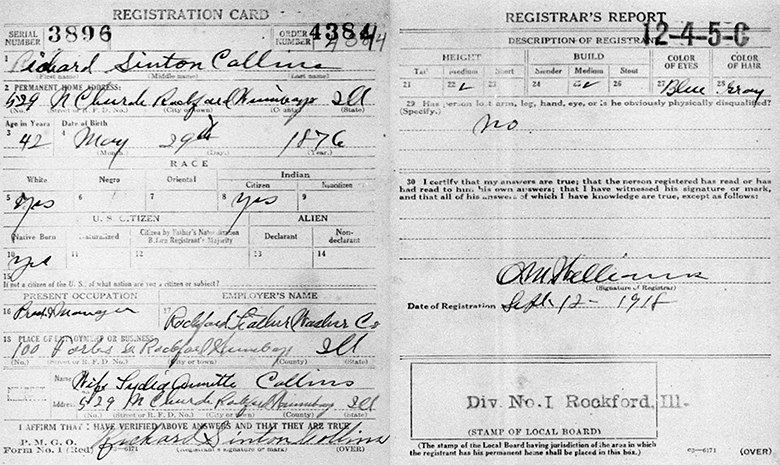 REGISTRATION CARD
SERIAL NUMBER 3896 ORDER NUMBER 4384 4384
1 Richard Sinton Collins
(First name) (Middle name) (Last name)
2 PERMANENT HOME ADDRESS:
529 N Church Rockford Winnebago Ill
(No.) (Street or R. F. D. No.) (City or town) (County) (State)
Age in Years Date of Birth
3 42 4 May 29th 1876
(Month.) (Day.) (Year.)
RACE
White Negro Oriental Indian
Citizen Noncitizen
5 yes 6 7 8 yes 9
U. S. CITIZEN ALIEN
Native Born Naturalized Citizen by Father's Naturalization Before Registrant's Majority Declarant Non-declarant
10 yes 11 12 13 14
15
If not a citizen of the U. S., of what nation are you a citizen or subject?
PRESENT OCCUPATION EMPLOYER'S NAME
16 Manager 17 Rockford Leather Washer Co
18 PLACE OF EMPLOYMENT OR BUSINESS:
100 Forbes Rockford Winnebago Ill
(No.) (Street or R. F. D. No.) (City or town) (County) (State)
Name Wife Lydia Collins
Address 529 N Church Rockford Winnebago Ill
(No.) (Street or R. F. D. No.) (City or town) (County) (State)
I AFFIRM THAT I HAVE VERIFIED ABOVE ANSWERS AND THAT THEY ARE TRUE
P. M. G. O.
Form No. 1 (Red) 03—6171 Richard Sinton Collins
(Registrant's signature or mark) (OVER)
REGISTRAR'S REPORT
12-4-5-C
DESCRIPTION OF REGISTRANT
HEIGHT BUILD COLOR OF EYES COLOR OF HAIR
Tall Medium Short Slender Medium Stout
21 22 23 24 25 26 27 Blue 28 Gray
29 Has person lost arm, leg, hand, eye, or is he obviously physically disqualified?
(Specify.)
no
30 I certify that my answers are true; that the person registered has read or has
had read to him his own answers; that I have witnessed his signature or mark,
and that all of his answers of which I have knowledge are true, except as follows:
Williams
(Signature of Registrar)
Date of Registration Sept 12 - 1918
Div. No. 1 Rockford, Ill.
(STAMP OF LOCAL BOARD)
(The stamp of the Local Board having jurisdiction of the area in which
the registrant has his permanent home shall be placed in this box.)
03—6171 (OVER)